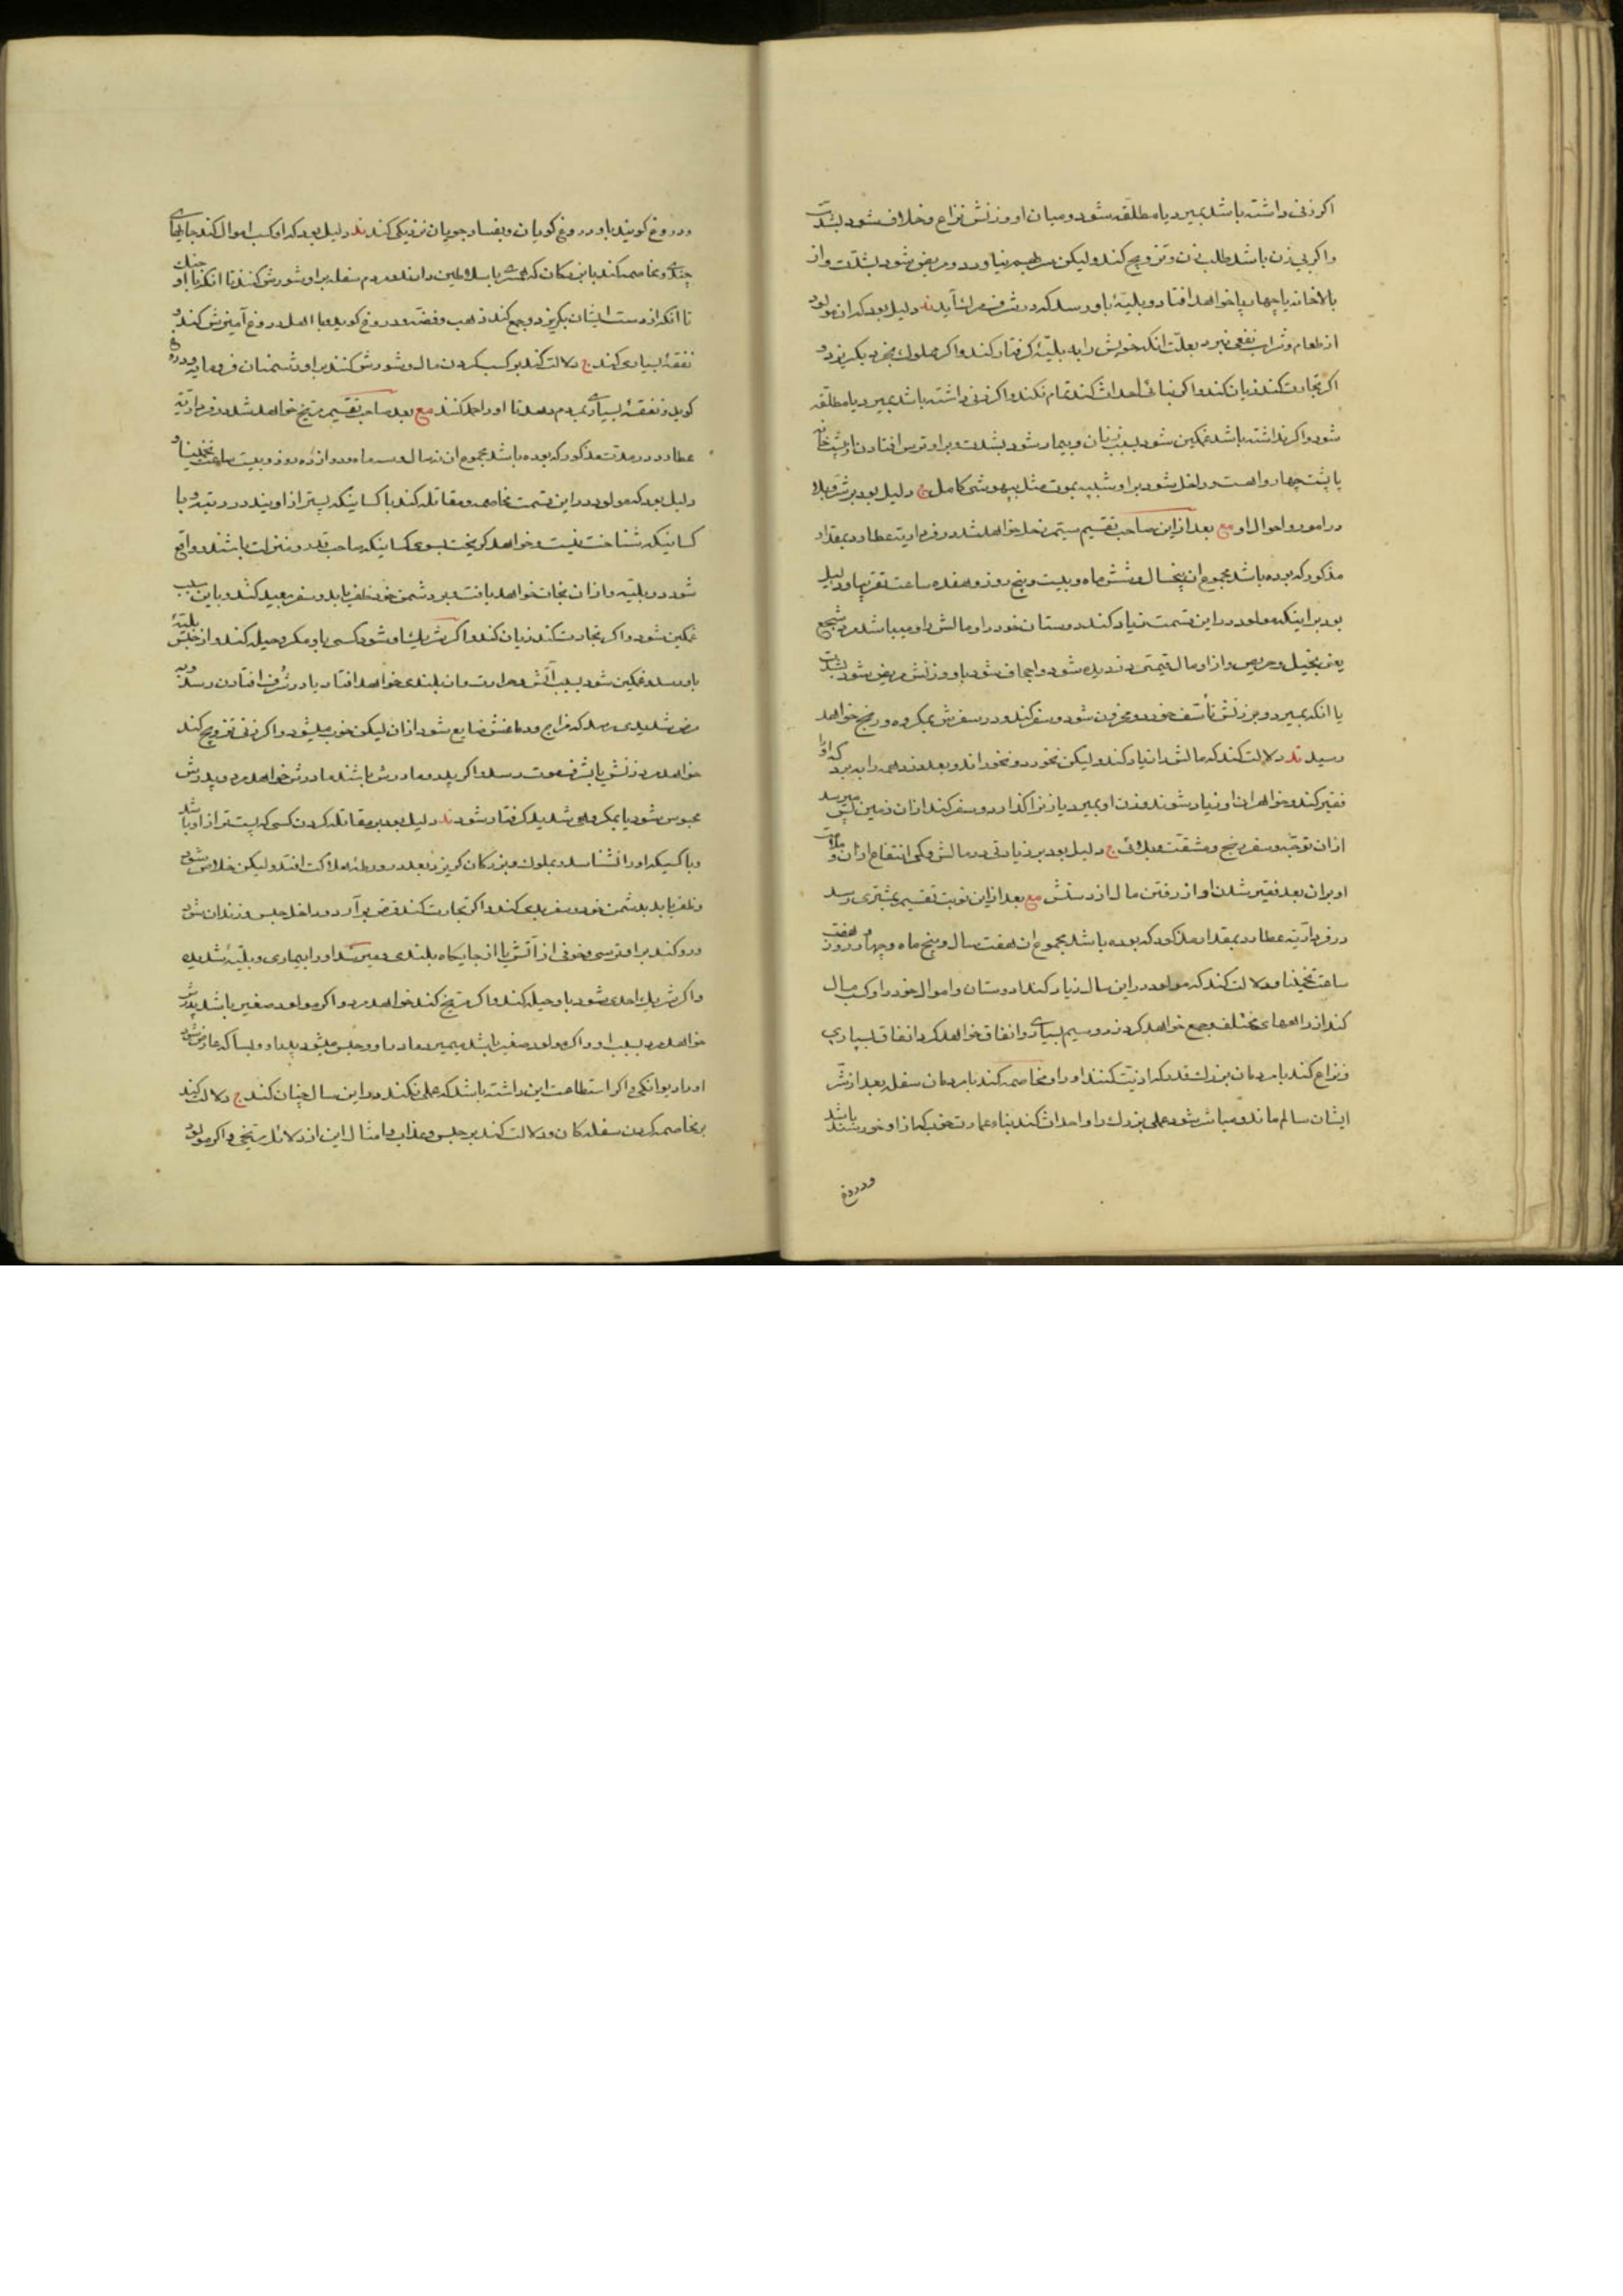 اکر زنی داشته باشد بمیرد یا مطلقه شود و میان او و زنش نزاع و خلاف شود بشدت
واکر بی زن باشد طلب زن و تزویج کند ولیکن سرانجام نیاورد و مریض شود بشدت واز
بالاخانه یا چهارپا خواهد افتاد و بلیّۀ باو رسد که در شرف مرک آید ند دلیل بود که از مولود
از طعام و شراب نفعی نبرد بعلت انکه خویش را به بلیّۀ کرفتار کند واکر مملوک بخرد بکریزد و
اکر تجارت کند زیان کند واکر بنائی احداث کند تمام نکند واکر زنی داشته باشد بمیرد یا مطلقه
شود واکر نداشته باشد غمکین شود بسبب زنان و بیمار شود بشدت و بر او ترس افتادن از پشت خانه
یا پشت چهارپا هست و داخل شود بر او شبیه بموت مثل بیهوشی کامل ج دلیل بود بر شر و بلا
در امور و احوال او مع بعد از این صاحب تقسیم سیّم زحل خواهد شد در فرداریه عطارد بمقدار
مذکور که بوده باشد مجموع ان پنجسال و شش ماه و بیست و پنج روز و هفده ساعت تقریبا و دلیل
بود بر اینکه مولود در این قسمت زیاد کند دوستان خود را و مالش را و میباشد مرد شحیح
یعنی بخیل و حریص و از او مال قیمتی دزدیده شود و اجحاف شود باو و زنش مریض شود بشدت
یا انکه بمیرد و بر زنش تأسف خورد و محزون شود و سفر کند و در سفرش بمکروه و رنج خواهد
رسید ند دلالت کند که مالش را زیاد کند ولیکن نخورد و نخوراند و بعد دزد همه را ببرد که او را
فقیر کند و خواهران او زیاد شوند و زن او بمیرد یا زنرا کذارد و سفر کند از ان زمین پس میرسد
از ان توجّه و سفر رنج و مشقت و بلائی ج دلیل بود بر زیادتی در مالش و کمی انتفاع از ان و ملامت
او بر ان بعد فقیر شدن او از رفتن مال از دستش مع بعد از این نوبت تقسیم بمشتری رسد
در فرداریه عطارد بمقدار مذکور که بوده باشد مجموع ان هفت سال و پنج ماه و چهار روز و هفت
ساعت تخمینا و دلالت کند که مولود در این سال زیاد کند دوستان و اموال خود را و کسب مال
کند از راههای مختلف و جمع خواهد کرد زر و سیم بسیاری و انفاق خواهد کرد انفاق بسیاری
و نزاع کند با مردمان بزرک قدر که اذیت کنند او را و مخاصمه کند با مردمان سفله بعد از شر
ایشان سالم ماند و مباشر شود عملی بزرک را و احداث کند بناء و عمارت خوب که از او خورسند باشد
ودروغ
ودروغ کویند باو دروغ کویان و بفساد جویان نزدیکی کند ند دلیل بود که او کسب اموال کند جاهای
چندی و مخاصمه کند با بزرکان که همسری با سلاطین دارند و مردم سفله بر او شورش کنند تا انکه با او جنک
تا انکه از دست ایشان بکریزد و جمع کند ذهب و فضه و دروغ کوید و با اهل دروغ آمیزش کند و
نفقۀ بسیاری کند ج دلالت کند بر کسب کردن مال و شورش کنند بر او دشمنان فرومایه و دروغ
کوید و نفقۀ بسیاری بمردم دهد تا او را حمد کنند مع بعد صاحب تقسیم مریخ خواهد شد در فرداریه
عطارد در مدت مذکور که بوده باشد مجموع ان سال و سه ماه و دوازده روز و بیست ساعت تخمینا و
دلیل بود که مولود در این قسمت مخاصمه و مقاتله کند با کسانیکه پستر از اویند در رتبه و با
کسانیکه شناخت نیست و خواهد کریخت بسوی کسانیکه صاحب قدر و منزلت باشند و واقع
شود در بلیّه و از ان نجات خواهد یافت و بر دشمن خود ظفر یابد و سفر بعید کند و باین سبب
غمکین شود و اکر تجارت کند زیان کند و اکر شریک او شود کسی باو مکر و حیله کند و از جنس بلیّۀ
باو رسد و غمکین شود بسبب آتش و حرارت و از بلندی خواهد افتاد یا در شرف افتادن رسد و به
مرض شدیدی رسد که مزاج و دماغش ضایع شود از ان لیکن خوب میشود و اکر زنی تزویج کند
خواهد مرد زنش یا بشرف موت رسد و اکر پدر و مادرش باشند مادرش خواهد مرد و پدرش
محبوس شود یا بمکروهی شدید کرفتار شود ند دلیل بود بر مقاتله کردن کسی که پستر از او باشد
و با کسیکه او را نشناسد و بملوک و بزرکان کریزد و بعد در ورطۀ هلاکت افتد ولیکن خلاص شود
و ظفر یابد بدشمن خود و سفر بدی کند و اکر تجارت کند قرض برآرد و داخل حبس و زندان شود
ورو کند بر او ترسی و خوفی از آتش یا از جایکاه بلندی و میرسد او را بیماری و بلیّۀ شدیده
واکر شریک احدی شود باو حیله کند و اکر تزویج کند خواهد مرد و اکر مولود صغیر باشد پدرش
خواهد مرد بسبب او و اکر مولود صغیر باشد میمیرد مادر او و حبس میشود پدر او و بسا که عارض شود
او را دیوانکی و اکر استطاعت این داشته باشد که عملی بکند در این سال چنان کند ج دلالت کند
بر مخاصمه کردن سفلکان و دلالت کند بر حبس و عذاب و امثال این از دلائل مریخی و اکر مولود